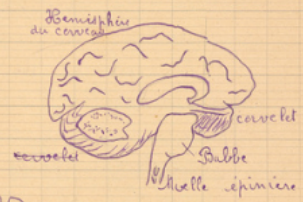 Hémisphère
du cerveau
cervelet
cervelet
Bulbe
Moelle épinière